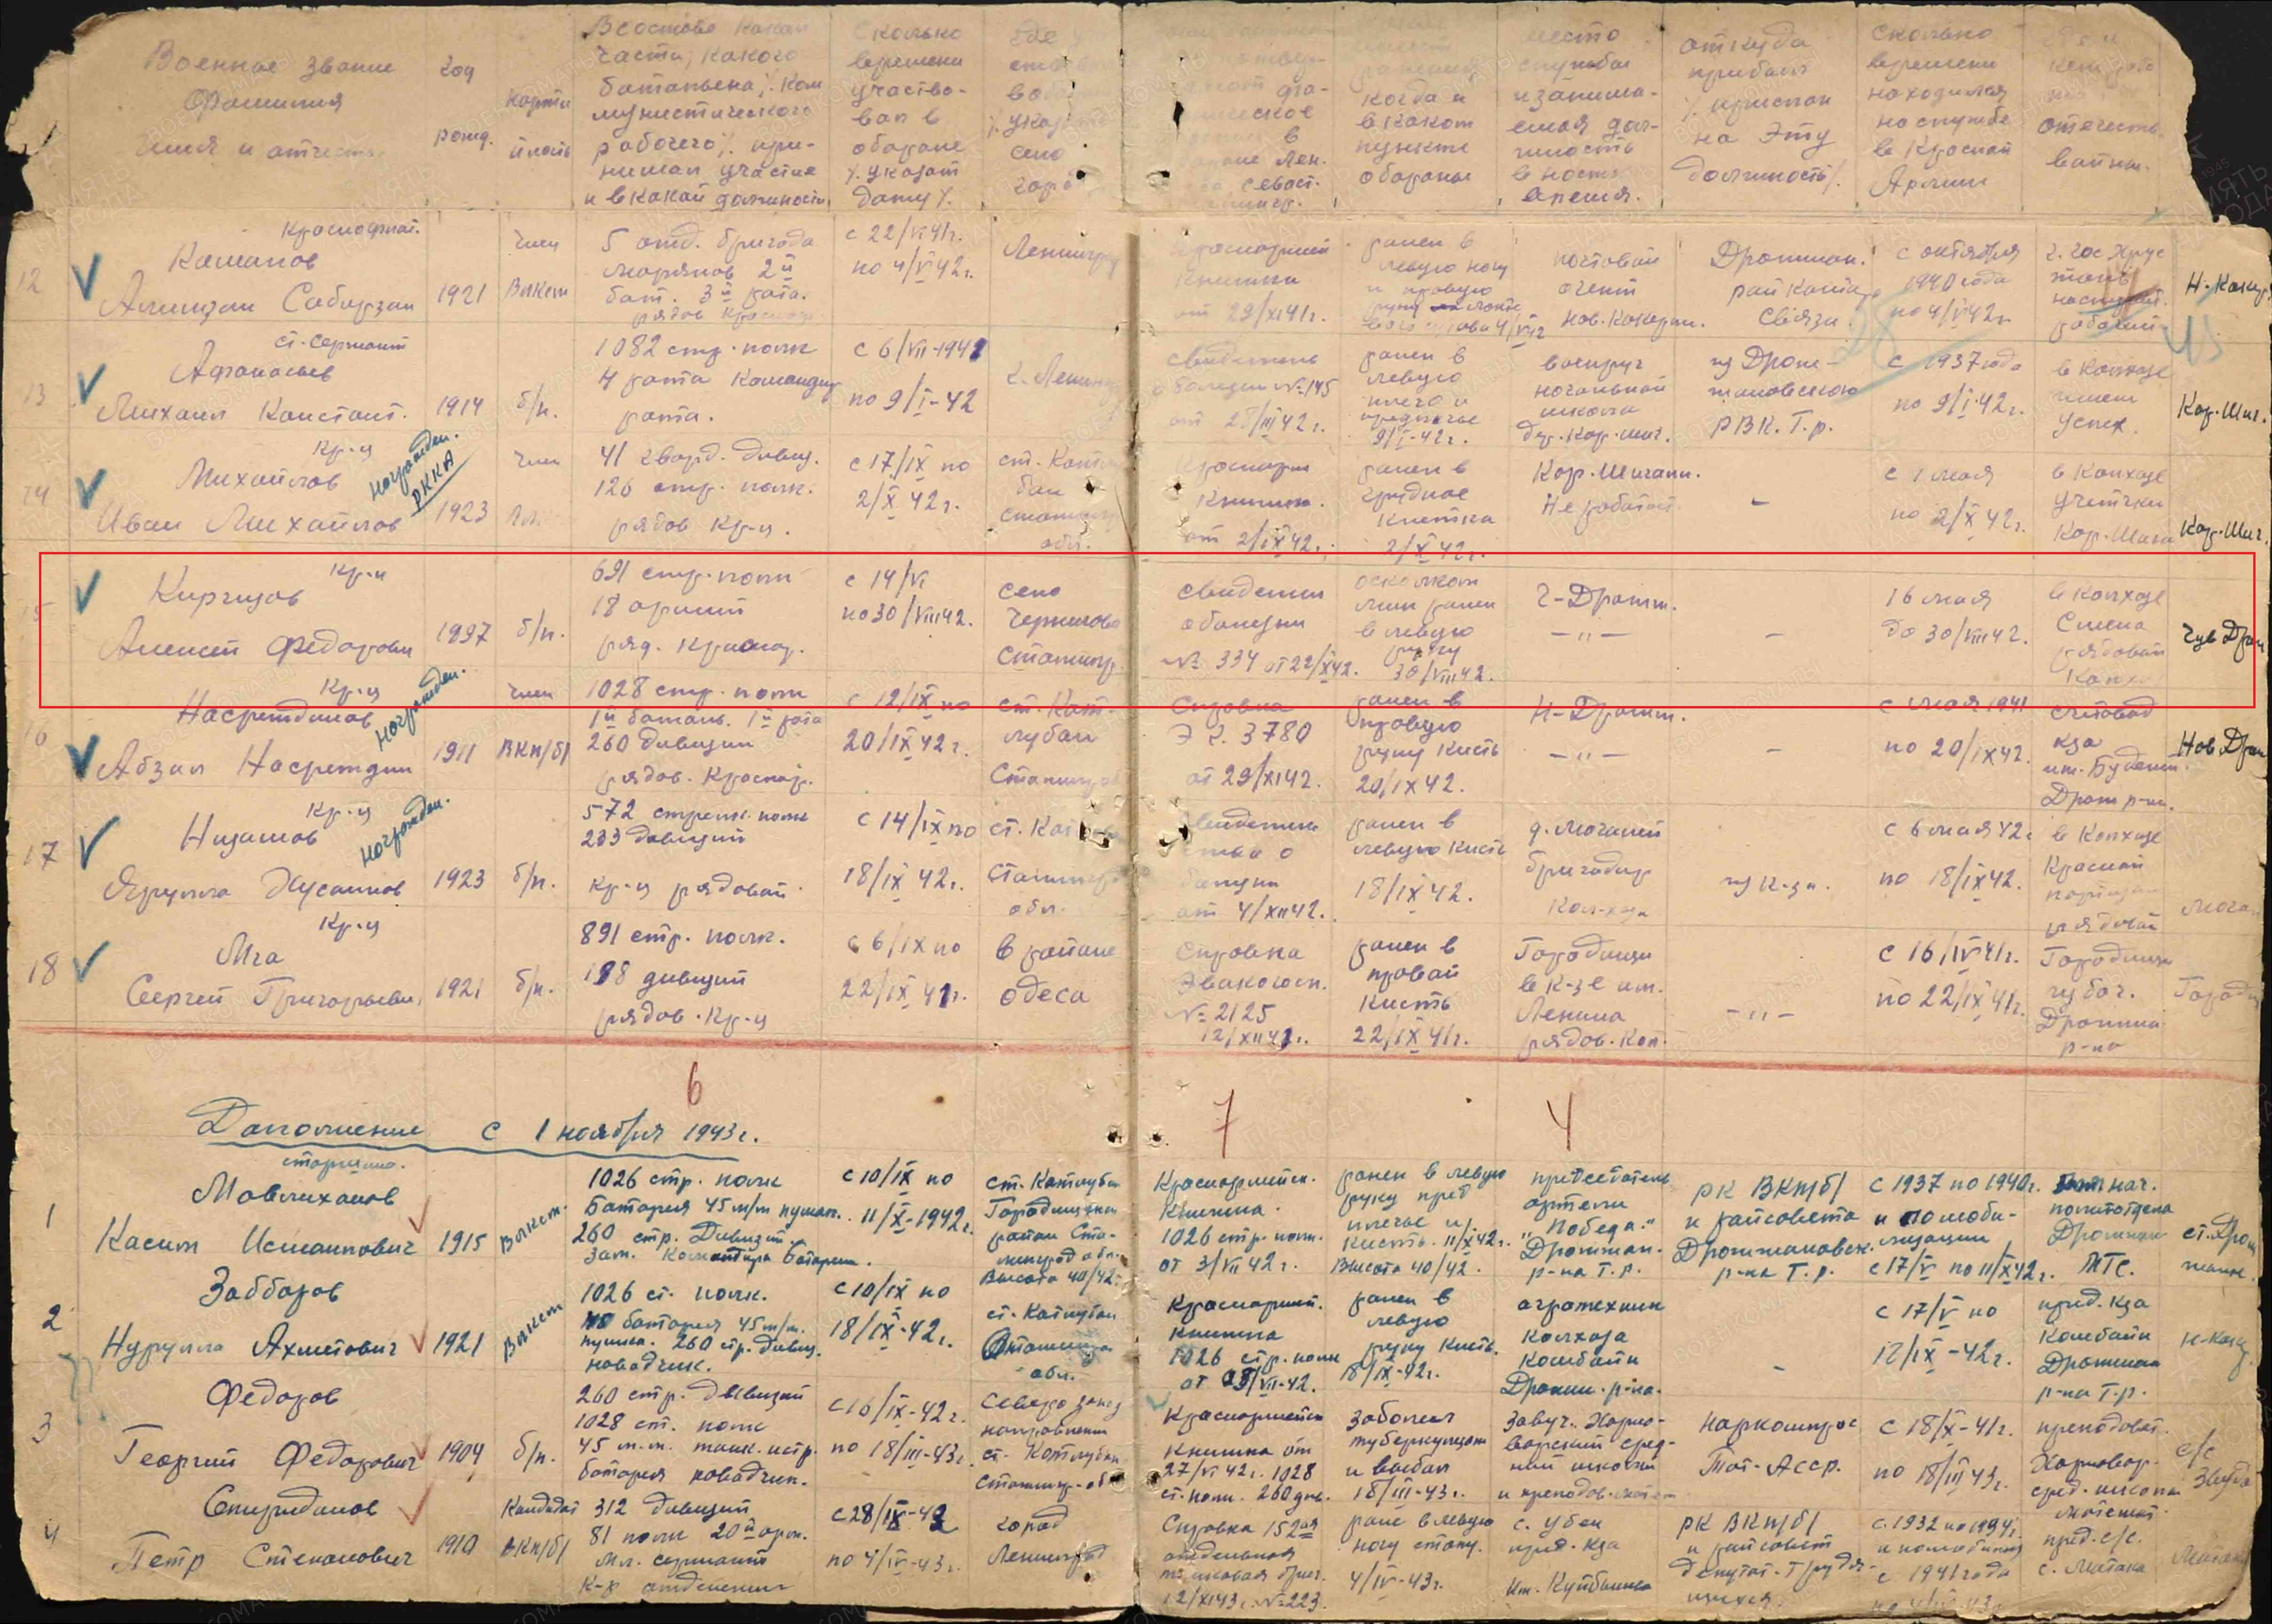 Военное звание
фамилия
имя и отчеств.
год
рожд.
партий
ность
В составе какой
части, какого
батальена /. ком
мунистического
рабочего /. при-
нимал участие
и в какой должности
Сколько
времени
участво-
вал в
обороне
/. указат
дату /.
где
/ указ
село
горо
ческое
в
обороне Лен.
Севаст.
ранения
когда и
в каком
пункте
обороны
место
службы
и занима-
емая дол-
жность
в насто
время.
откуда
прибыл
/. прислан
на эту
должность /.
Сколько
времени
находился
на службе
в Красной
Армии
кем рабо
отечеств.
войны.
12
Краснофлот.
Каманов
Алимзан Сабирзан
1921
Член
Влксм
5 отд. бригада
моряков 2й
бат. 3й рота.
рядов красноф
с 22/VI 41г.
по 4/V 42г.
Ленинград
Красноармей
книжка
от 29/XI 41г.
ранен в
левую ногу
и правую
почтовой
агент
Нов. Какерли.
Дрожжан.
рай контора
связи.
с октября
1940 года
по 4/V 42г
г. Гос. Хрус
рабочий
Н. Какер
13
ст. сержант
Афанасьев
Михаил Констант.
1914
б/п.
1082 стр. полк
4 рота командир
рота.
с 6/VII-1941
по 9/I-42
г. Ленинг
свидетель
о болезни №145
от 25/III 42г.
ранен в
левую
плечо и
предплечье
9/I-42г.
военрук
начальной
школы
др. Кор. Шиг.
из Дрож-
жановского
РВК. Т.р.
с 1937 года
по 9/I-42г.
в колхозе
имени
Успех.
Кор. Шиг.
14
Кр-ц
Михайлов
Иван Михайлов
награжден.
РККА
1923
Член
41 гвард. дивиз.
126 стр. полк.
рядов кр-ц.
с 17/IX по
2/X 42г.
ст. Котлу
бан
Сталингр
обл.
Красноарм
книжка.
от 2/IX 42г.
ранен в
грудное
клетка
2/X 42г.
Кор. Шигали.
Не работает.
-
с 1 мая
по 2/X 42г.
в колхозе
учетчик
Кор. Шига
Кор. Шиг.
15
Кр-ц
Киргизов
Алексей Федорови
1897
б/п.
691 стр. полк
18 армий
ряд. красноар.
с 14/VI
по 30/VIII 42г.
село
Чернигово
Сталингр.
свидетел
о болезни
№ 334 от 22/X 42г.
осколком
мин ранен
в левую
руку
30/VIII 42г.
Ч-Дрожж.
— " —
-
16 мая
до 30/VIII 42г.
в колхозе
Смена
рядовой
Колхо
Чув Дрож
16
Кр-ц
Насретдинов
Абзал Насретдин
награжден.
1911
член
ВКП/б/
1028 стр. полк
1й баталь. 1й рота
260 дивизии
рядов. красноар.
с 12/IX по
20/IX 42г.
ст. Кот-
лубан
Сталингра
Справка
Э г. 3780
от 29/XI 42г.
ранен в
правую
руку кисть
20/IX 42.
Н-Дрожж.
— " —
-
с мая 1941
по 20/IX 42г.
счетовод
кза
им. Буденн.
Дрож р-на.
Нов Дрож
17
Кр-ц
Низамов
Ярулла Хусаинов
награжден.
1923
б/п.
572 стрелк. полк
233 дивизий
кр-ц рядовой
с 14/IX по
18/IX 42г.
ст. Кот
Сталингр
обл.
свидетель
ства о
болезни
от 4/XII 42г.
ранен в
левую кисть
18/IX 42.
д. Мочалей
бригадир
Кол-хоза
из к-за.
с 6 мая 42г
по 18/IX 42.
в колхозе
Красный
партизан
рядовой
Моча
18
Кр-ц
Мга
Сергей Григорьеви.
1921
б/п.
891 стр. полк.
188 дивизий
рядов. Кр-ц
с 6/IX по
22/IX 41г.
в районе
Одеса
Справка
Эвакогосп.
№ 2125
12/XII 41г.
ранен в
правой
кисть
22/IX 41г.
Городищи
в к-зе им.
Ленина
рядов. кол.
— " —
с 16/IV 41г.
по 22/IX 41г.
Городищи
избач.
Дрожжан
р-на
Городи
6
7
4
Дополнение с 1 ноября 1943г.
1
старшина.
Мавлиханов
Касим Исмаилович
1915
Влксм.
1026 стр. полк
батарея 45 м/м пушк.
260 стр. Дивизий.
Зам. командира батареи.
с 10/IX по
11/X-1942г.
ст. Котлубан
Городищенск
район Ста-
линград обл.
Высота 40/42.
Красноармейск.
книжка.
1026 стр. полк.
от 3/VII 42г.
ранен в левую
руку пред
плечье и
кисть. 11/X 42г.
Высота 40/42.
председатель
артели
"Победа"
Дрожжан.
р-на Т.р.
РК ВКП/б/
и райсовета
Дрожжановск.
р-на Т.р.
с 1937 по 1940г.
и по моби-
лизации
с 17/V по 11/X 42г.
нач.
политотдела
Дрожжан
МТС.
ст. Дрож
жане.
2
Забборов
Нурулла Ахметович
1921
Влксм
1026 ст. полк.
батарея 45 м/м.
пушка. 260 стр. дивиз.
наводчик.
с 10/IX по
18/IX-42г.
ст. Котлубан
Сталингра
обл.
Красноармей.
книжка
1026 стр. полк
от 03/VII-42.
ранен в
левую
руку кисть.
18/IX-42г.
агротехник
колхоза
Комбайн
Дрожж. р-на.
-
с 17/V по
18/IX-42г.
пред. кза
Комбайн
Дрожжан
р-на Т.р.
Н-Каке
3
Федоров
Георгий Федорович
1904
б/п.
260 стр. дивизий
1028 ст. полк
45 м.м. танк. истр.
батарея наводчик.
с 16/IX-42г.
по 18/III-43г.
Северо запад
направлении
ст. Котлубан
Сталингр. об
Красноармейск
книжка от
27/VI 42г. 1028
ст. полк. 260 див.
Заболел
туберкулезом
и выбыл
18/III-43г.
Завуч. Харно-
варский сред-
ний школы
и преподов. матем
Наркомпрос
Тат-Асср.
с 18/X-41г.
по 18/III 43г.
преподоват.
Харновар.
сред. школы
математ.
с/с
Звезда
4
Спиридонов
Петр Степанович
1910
Кандидат
ВКП/б/
312 дивизий
81 полк 20й арм.
мл. сержант
к-р отделения
с 28/IX-42
по 4/IV-43г.
город
Ленинград
Справка 152ая
отдельная
танковая бриг.
12/XI 43г. № 223.
ране в левую
ногу стопу.
4/IV-43г.
с. Убеи
пред. кза
им. Куйбышева
РК ВКП/б/
и райсовет
депутат. Трудя-
щихся.
с 1932 по 1934г.
и по мобилиз
с 1941 года
по 4/IV-43г.
пред. с/с.
с. Матака
Матаки